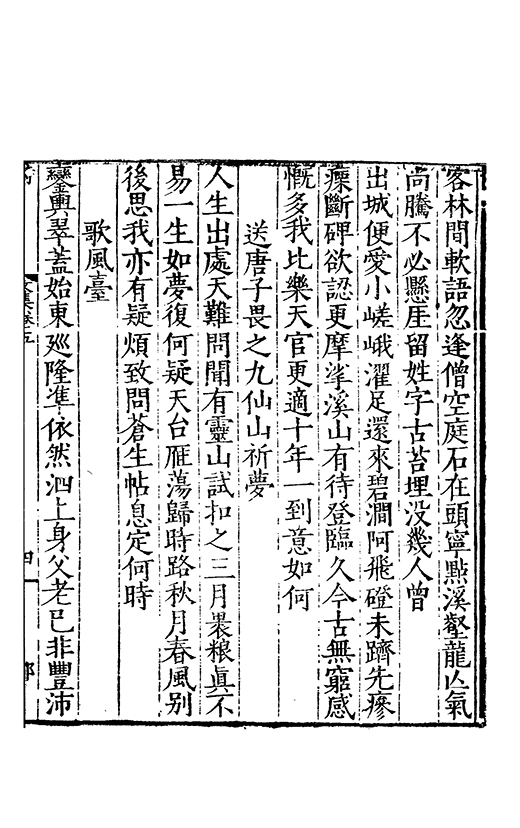 客林間軟語忽逢僧空庭石在頭寧㸃溪壑龍亾氣
尚騰不必懸厓留姓字古苔埋没幾人曾
出城便愛小嵯峨濯足還來碧澗阿飛磴未躋先瘮
瘝斷碑欲認更摩挲溪山有待登臨久今古無窮感
慨多我比樂天官更適十年一到意如何
送唐子畏之九仙山祈夢
人生出處天難問聞有靈山試扣之三月褁粮眞不
易一生如夢復何疑天台雁蕩歸時路秋月春風别
後思我亦有疑煩致問蒼生帖息定何時
歌風臺
鑾輿翠蓋始東廵隆準依然泗上身父老已非豐沛
文集卷五
四